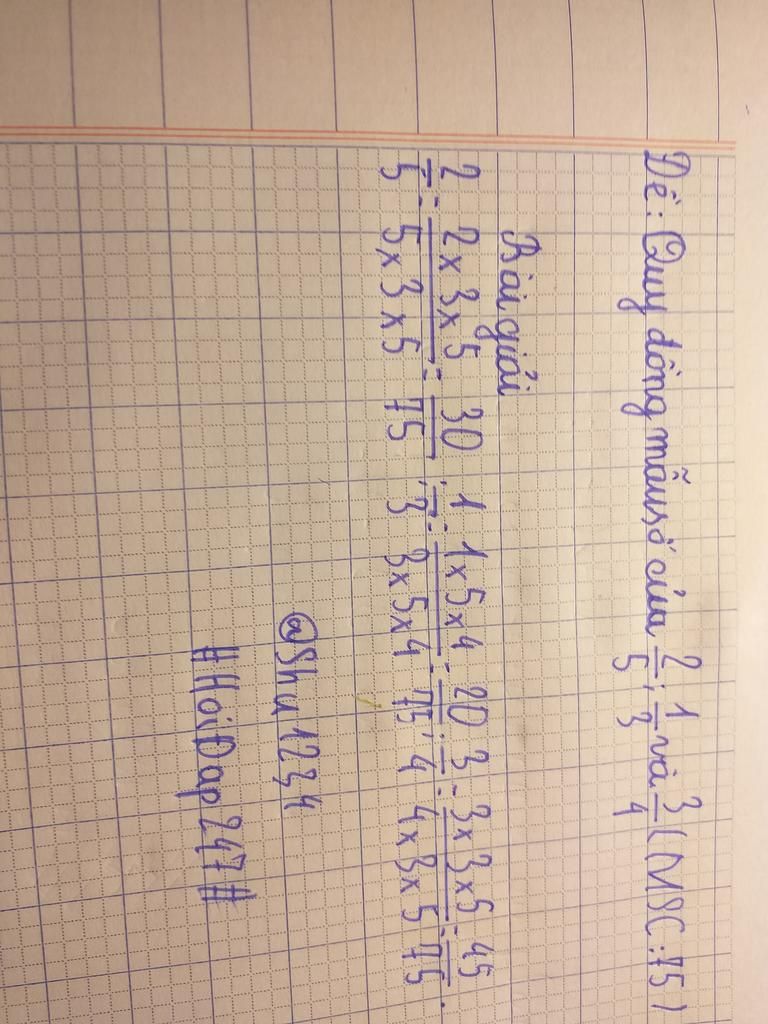 Dề: Quy đồng mẫu số của 2/5; 1/3 và 3/4 (MSC:75)
Bài giải
2/5 = 2 x 3 x 5/5 x 3 x 5 = 30/75; 1/3 = 1 x 5 x 4/3 x 5 x 4 = 20/75; 3/4 = 3 x 3 x 5/4 x 3 x 5 = 45/75.
@Shu1234
#HoiDap247#